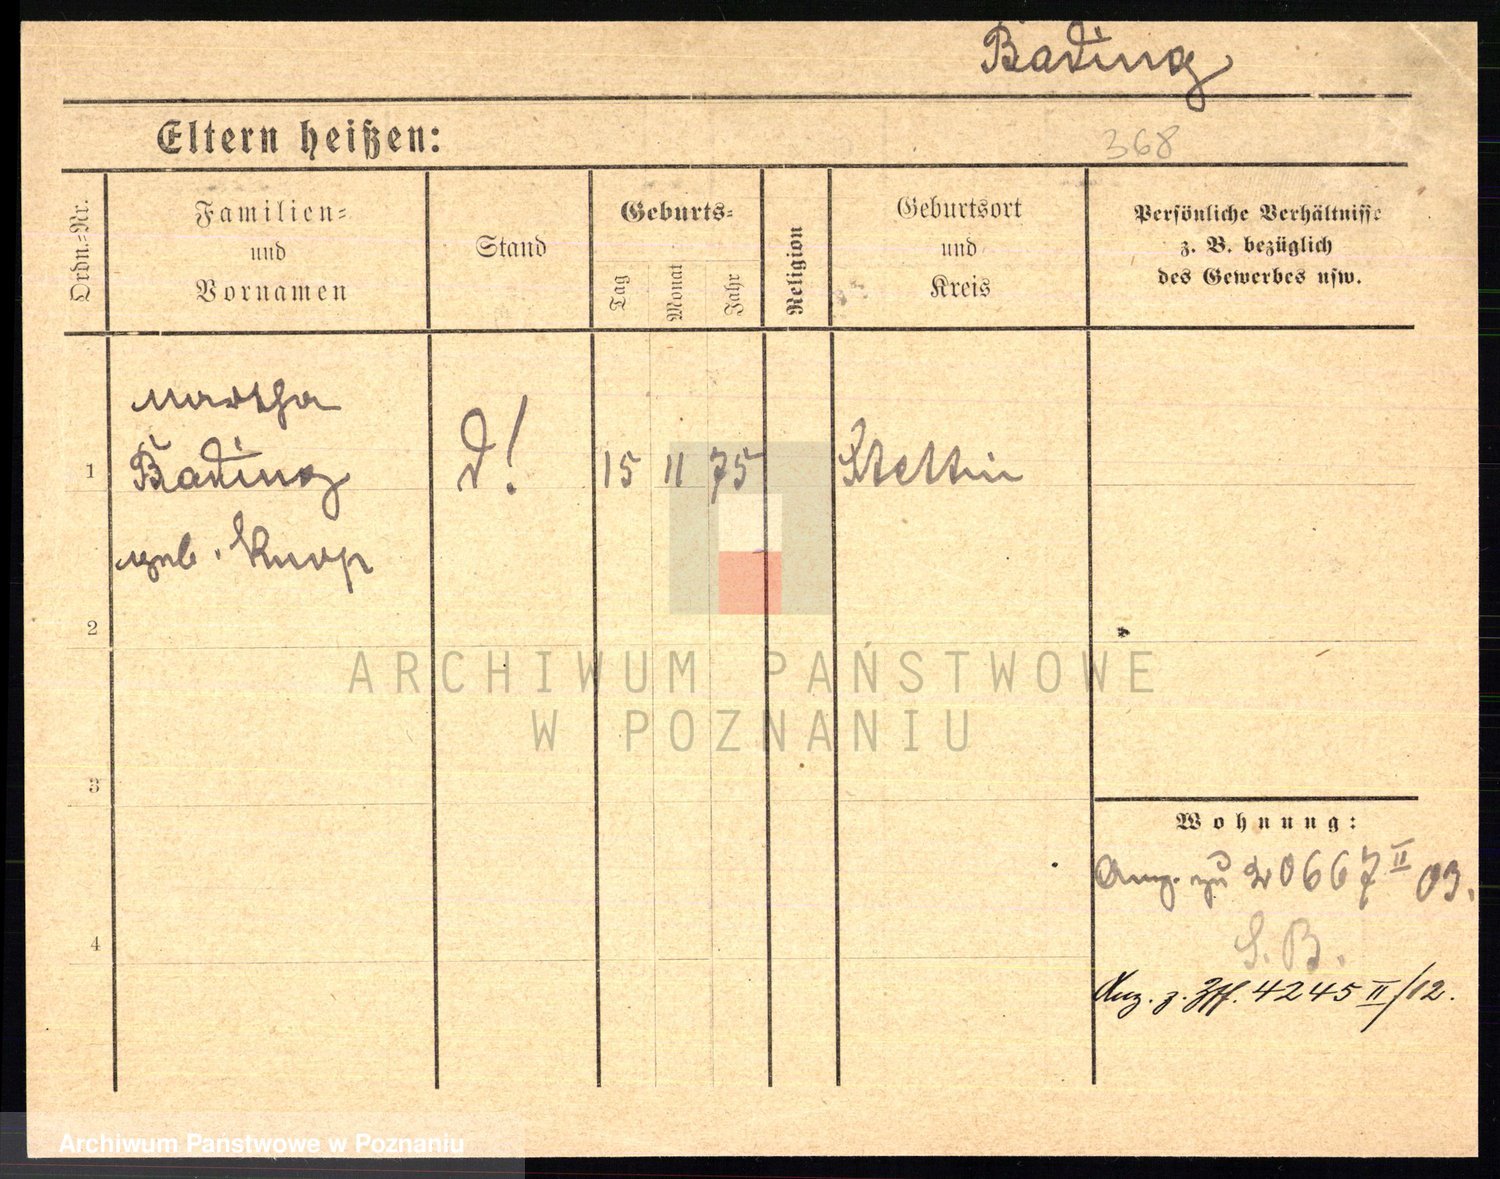 Bading
Eltern heißen:
368
Ordn.=Nr.
Familien=
und
Vornamen
Stand
Geburts=
Tag
Monat
Jahr
Religion
Geburtsort
und
Kreis
Persönliche Verhältnisse
z. B. bezüglich
des Gewerbes usw.
1
Martha
Bading
geb. Knop
15 11 75
Stettin
2
3
4
Wohnung:
Ang. zu 20667 II 03.
S. B.
Ang. z. Zff. 4245 II/12.
ARCHIWUM PAŃSTWOWE
W POZNANIU
Archiwum Państwowe w Poznaniu